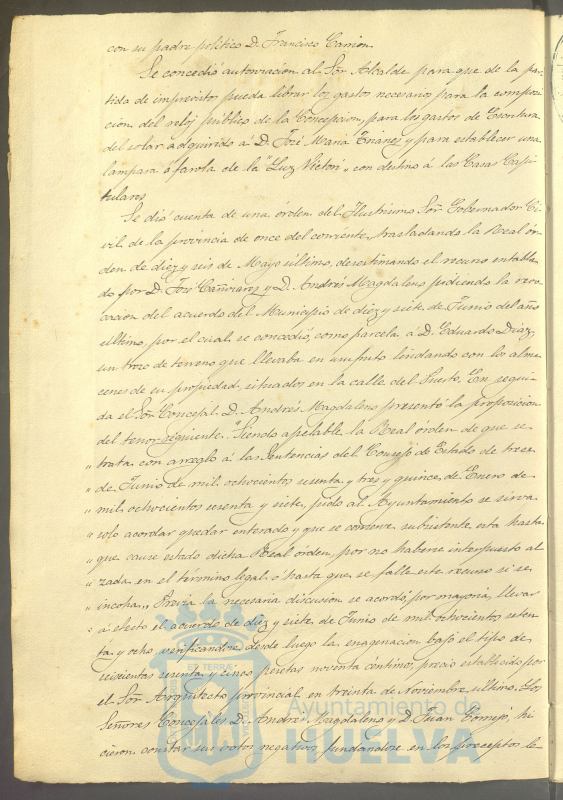 con su padre politico D. Francisco Carrion.
Se concedió autorizacion al Señr Alcalde para que de la par-
tida de imprevistos pueda librar los gastos necesarios para la composi-
cion del reloj público de la Concepcion, para los gastos de Escritura
del solar adquirido á D. José Maria y para establecer una
lampara ó farola de la "Luz Victori" con destino á las Casas Capi-
tulares.
Se dió cuenta de una órden del Ilustrisimo Señr Gobernador Ci-
vil de la provincia de once del corriente, trasladando la Real ór-
den de diez y seis de Mayo último, desestimando el recurso entabla-
do por D. José Cañizares y D. Andrés Magdaleno pidiendo la revo-
cacion del acuerdo del Municipio de diez y siete de Junio del año
último, por el cual se concedió, como parcela á D. Eduardo Diaz,
un trozo de terreno que llevaba en lindando con los alma-
cenes de su propiedad, situados en la calle del Puerto. En segui-
da el Señr Concejal D. Andrés Magdaleno presentó la proposicion
del tenor siguiente. "Siendo apelable la Real orden de que se
" trata con arreglo á las Sentencias del Consejo de Estado de trece
" de Junio de mil ochocientos sesenta y tres y quince de Enero de
" mil ochocientos sesenta y siete, pido al Ayuntamiento se sirva
" solo acordar quedar enterado y que se conserve subsistente esta hasta
" que cause estado dicha Real orden, por no haberse interpuesto al
" zada en el término legal ó hasta que se falle este recurso si se
" incoha". Previa la necesaria discusion se acordó, por mayoria, llevar
á efecto el acuerdo de diez y siete de Junio de mil ochocientos seten-
ta y ocho verificandose desde luego la enagenacion bajo el tipo de
seiscientas sesenta y cinco pesetas noventa centimos, precio establecido por
el Señr Arquitecto provincial en treinta de Noviembre último. Los
Señores Concejales D. Andrés Magdaleno y D. Juan Cornejo, hi-
cieron constar sus votos negativos fundandose en los preceptos le-
Ayuntamiento de
HUELVA